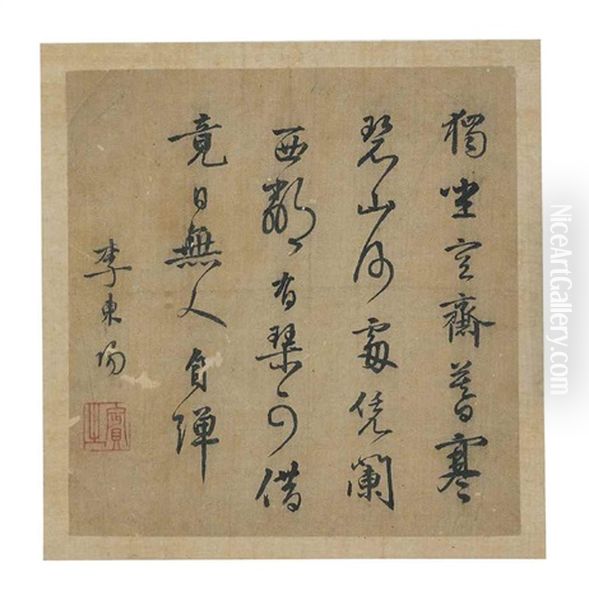 獨坐空齋暮寒
碧山何處凭闌
西鄰有琴可借
竟日無人自彈
李東陽
賓之
NiceArtGallery.com